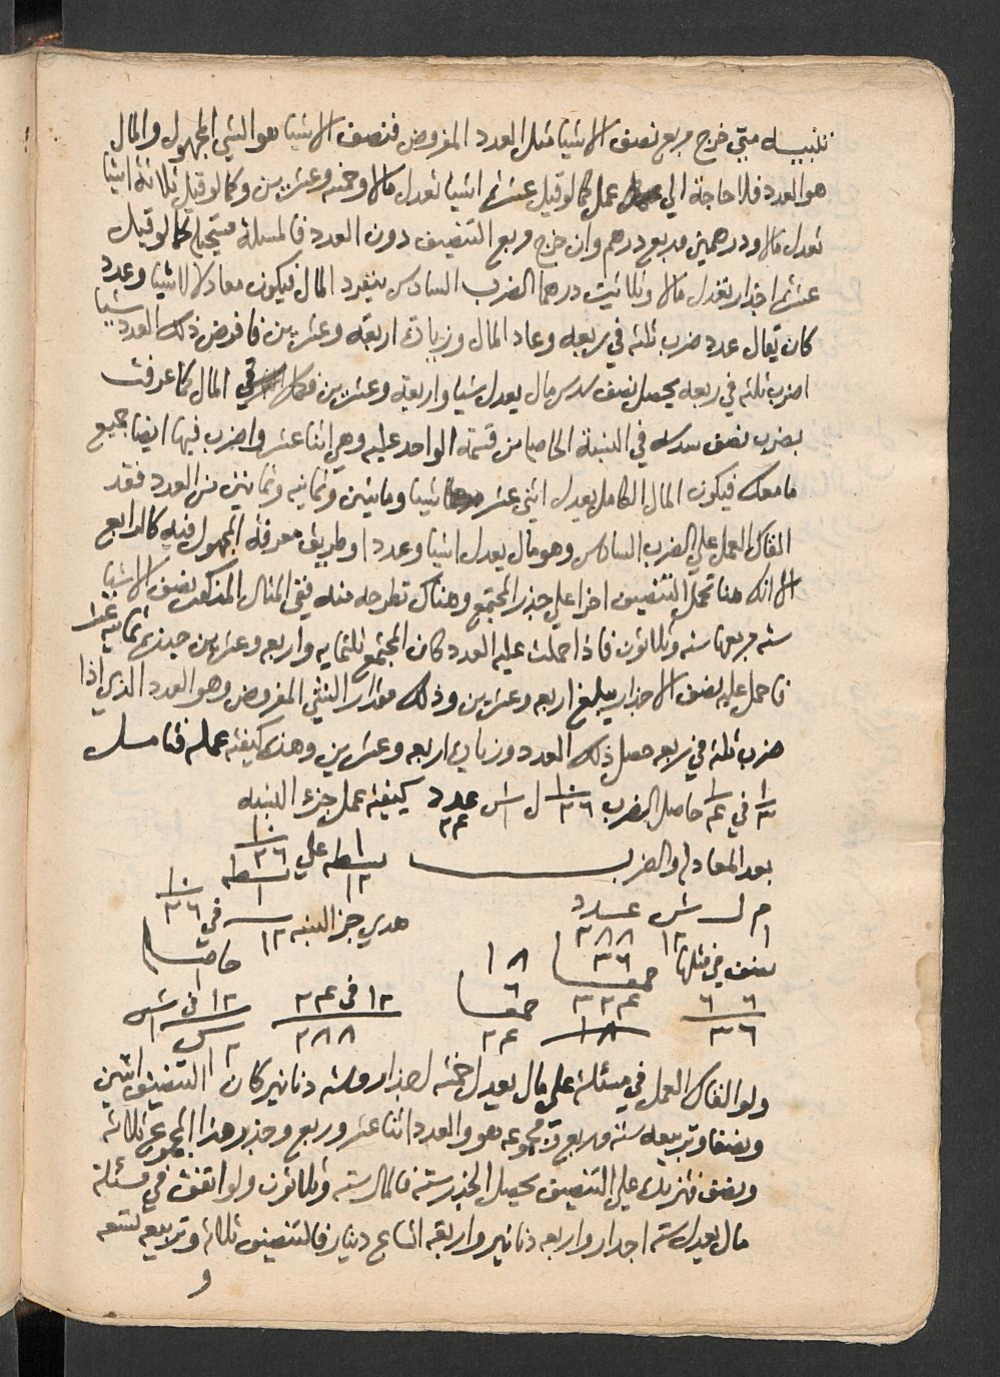 تنبيه متي خرج مربع نصف الاشيا مثل العدد المفروض فنصف الاشيا هو الشي المجهول والمال
هو العدد فلا حاجة الي عمل كما لو قيل عشرة اشيا تعدل مالا وخمسة وعشرين وكما لو قيل ثلاثة اشيا
تعدل مالا ودرهمين وربع درهم وان خرج مربع التنصيف دون العدد فالمسلة مستحيلة كما لو قيل
عشرة اجذار تعدل مالا وثلاثين درهما الضرب السادس ينفرد المال فيكون معادلا لاشيا وعدد
كان يقال عدد ضرب ثلثه في ربعه وعاد المال وزيادة اربعة وعشرين فافرض ذلك العدد شيا
اضرب ثلثه في ربعه يحصل نصف سدس مال يعدل شيا واربعة وعشرين فكمل المال كما عرفت
بضرب نصف سدسه في النسبة الحاصل من قسمة الواحد عليه وهي اثنا عشر واضرب فيها ايضا جميع
ما معك فيكون المال الكامل يعدل اثني عشر شيا ومايتين وثمانيه وثمانين من العدد فقد
القاك العمل علي الضرب السادس وهو مال يعدل اشيا وعددا وطريق معرفة المجهول فيه كالرابع
الا انك هنا تحمل التنصيف اخرا علي جذر المجتمع وهناك تطرحه منه ففي المثال المذكور نصف الاشيا
سته مربعها سته وثلاثون فاذا حملت عليه العدد كان المجتمع ثلثمايه واربعه وعشرين جذره ثمانية عشر
فاحمل عليه نصف الاجذار يبلغ اربعه وعشرين وذلك مقدار الشي المفروض وهو العدد الذي اذا
ضرب ثلثه في ربعه حصل ذلك العدد وزيادة اربعه وعشرين وهذه كيفية عمله فتامل
١/٣ في ١/٤ حاصل الضرب ١٠/٣٦ ل ١ش عدد ٢٤ كيفية عمل جزء النسبه
بعد المعادلة والضرب ١/١٢ بسطه علي ١٠/٣٦ بسطه ١
م ل ش عدد هذي جز النسبه ١٢ في ١٠/٣٦
١ ١٢ ٢٨٨ حاصله ١
نصف في مثلها ٣٦ جمعها ١٨
٦ ٦ ٣٢٤ ٦ جمعها ١٢ في ٢٤ ١٢ في ١ش
٣٦ ١٨ ٢٤ ٢٨٨ ١٢ش
ولو القاك العمل في مسئلة علي مال يعدل خمسة اجذار وستة دنانير كان التنصيف اثنين
ونصفا وتربيعه ستة وربع ومجموعه هو والعدد اثنا عشر وربع وجذر هذا المجموع ثلاثة
ونصف فتزيد علي التنصيف يحصل الجذر ستة فالمال ستة وثلاثون ولو اتفق في مسئلة
مال يعدل ستة اجذار واربعه دنانير واربعة اتساع دينار فالتنصيف ثلاثة وتربيعه تسعه
و